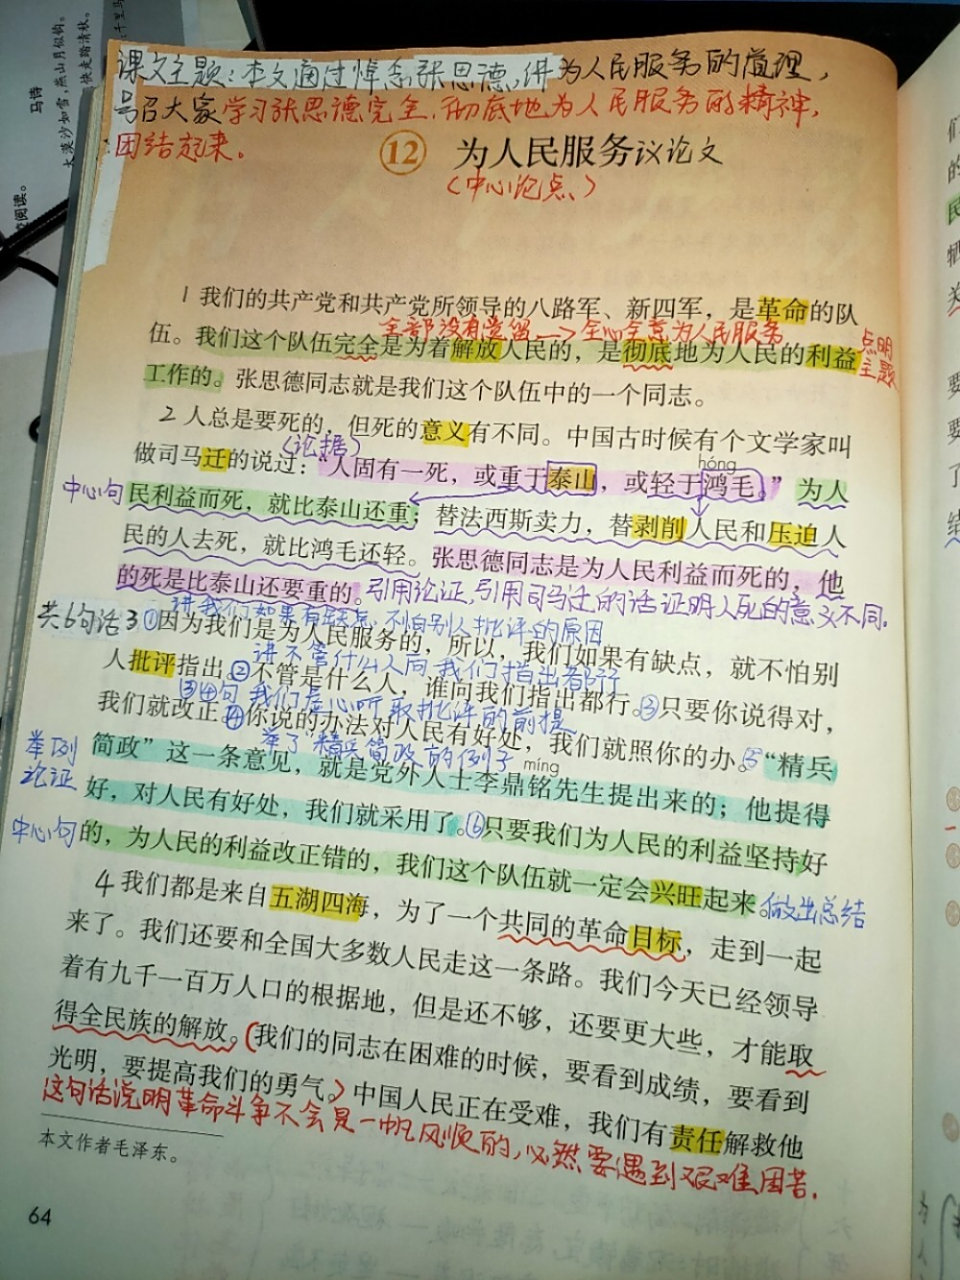 马诗
大漠沙如雪，燕山月似钩。
快走踏清秋。
课文主题：本文通过悼念张思德，讲为人民服务的道理，
号召大家学习张思德完全、彻底地为人民服务的精神，
团结起来。
12 为人民服务议论文
（中心论点）
1 我们的共产党和共产党所领导的八路军、新四军，是革命的队
全部没有遗留→全心全意为人民服务
伍。我们这个队伍完全是为着解放人民的，是彻底地为人民的利益
点明
主题
工作的。张思德同志就是我们这个队伍中的一个同志。
2 人总是要死的，但死的意义有不同。中国古时候有个文学家叫
（论据）
做司马迁的说过：“人固有一死，或重于泰山，或轻于鸿毛。”为人
hóng
中心句
民利益而死，就比泰山还重；替法西斯卖力，替剥削人民和压迫人
民的人去死，就比鸿毛还轻。张思德同志是为人民利益而死的，他
的死是比泰山还要重的。引用论证，引用司马迁的话证明人死的意义不同。
讲我们如果有缺点，不怕别人批评的原因
共6句话 3 ①因为我们是为人民服务的，所以，我们如果有缺点，就不怕别
讲不管什么人向我们指出都行
人批评指出。②不管是什么人，谁向我们指出都行。③只要你说得对，
③④句 我们虚心听取批评的前提
我们就改正。④你说的办法对人民有好处，我们就照你的办。⑤“精兵
举了“精兵简政”的例子
举例
论证
简政”这一条意见，就是党外人士李鼎铭先生提出来的；他提得
míng
好，对人民有好处，我们就采用了。⑥只要我们为人民的利益坚持好
中心句
的，为人民的利益改正错的，我们这个队伍就一定会兴旺起来。做出总结
4 我们都是来自五湖四海，为了一个共同的革命目标，走到一起
来了。我们还要和全国大多数人民走这一条路。我们今天已经领导
着有九千一百万人口的根据地，但是还不够，还要更大些，才能取
得全民族的解放。（我们的同志在困难的时候，要看到成绩，要看到
光明，要提高我们的勇气。）中国人民正在受难，我们有责任解救他
这句话说明革命斗争不会是一帆风顺的，必然要遇到艰难困苦。
本文作者毛泽东。
64